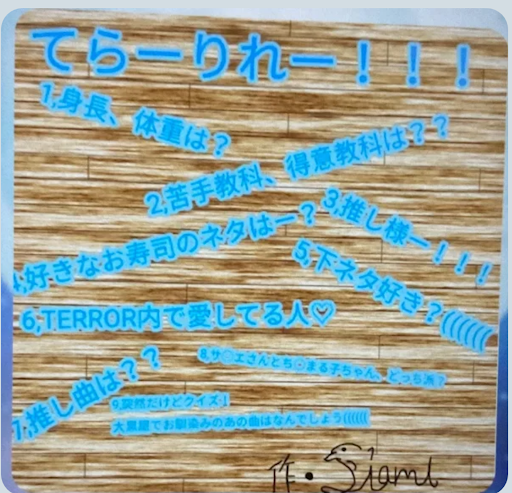 てらーりれー！！！
1,身長、体重は？
2,苦手教科、得意教科は？？
3,推し様ー！！！
4,好きなお寿司のネタはー？
5,下ネタ好き？(((((
6,TERROR内で愛してる人♡
7,推し曲は？？
8,サ◎エさんとち◎まる子ちゃん、どっち派？
9,突然だけどクイズ！
大黒屋でお馴染みのあの曲はなんでしょう((((((
作・Siami